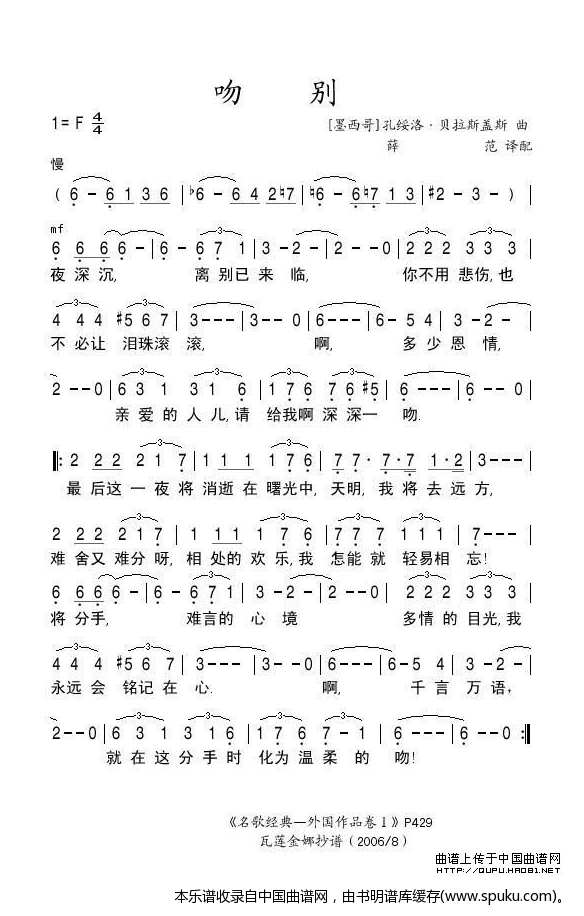 吻 别
1=F 4/4
[墨西哥]孔绥洛·贝拉斯盖斯 曲
薛 范 译配
慢
( 6 - 6 1 3 6 | ♭6 - 6 4 2 ♮7 | ♮6 - 6 ♮7 1 3 | ♯2 - 3 - ) |
mf
6 6 6 6 - | 6 - 6 7 1 | 3 - 2 - | 2 - - 0 | 2 2 2 3 3 3 |
夜 深 沉, 离 别 已 来 临, 你 不 用 悲 伤, 也
4 4 4 ♯5 6 7 | 3 - - - | 3 - - 0 | 6 - - - | 6 - 5 4 | 3 - 2 - |
不 必 让 泪 珠 滚 滚, 啊, 多 少 恩 情,
2 - - 0 | 6 3 1 3 1 6 | 1 7 6 7 6 ♯5 | 6 - - - | 6 - - 0 |
亲 爱 的 人 儿, 请 给 我 啊 深 深 一 吻.
‖: 2 2 2 2 1 7 | 1 1 1 1 7 6 | 7 7· 7·7 1·2 | 3 - - - |
最 后 这 一 夜 将 消 逝 在 曙 光 中, 天 明, 我 将 去 远 方,
2 2 2 2 1 7 | 1 1 1 1 7 6 | 7 7 7 1 1 1 | 7 - - - |
难 舍 又 难 分 呀, 相 处 的 欢 乐, 我 怎 能 就 轻 易 相 忘!
6 6 6 6 - | 6 - 6 7 1 | 3 - 2 - | 2 - - 0 | 2 2 2 3 3 3 |
将 分 手, 难 言 的 心 境 多 情 的 目 光, 我
4 4 4 ♯5 6 7 | 3 - - - | 3 - - 0 | 6 - - - | 6 - 5 4 | 3 - 2 - |
永 远 会 铭 记 在 心. 啊, 千 言 万 语,
2 - - 0 | 6 3 1 3 1 6 | 1 7 6 7 - 1 | 6 - - - | 6 - - 0 :‖
就 在 这 分 手 时 化 为 温 柔 的 吻!
《名歌经典—外国作品卷1》P429
瓦莲金娜抄谱(2006/8)
曲谱上传于中国曲谱网
HTTP://QUPU.HAO81.NET
本乐谱收录自中国曲谱网，由书明谱库缓存(www.spuku.com)。